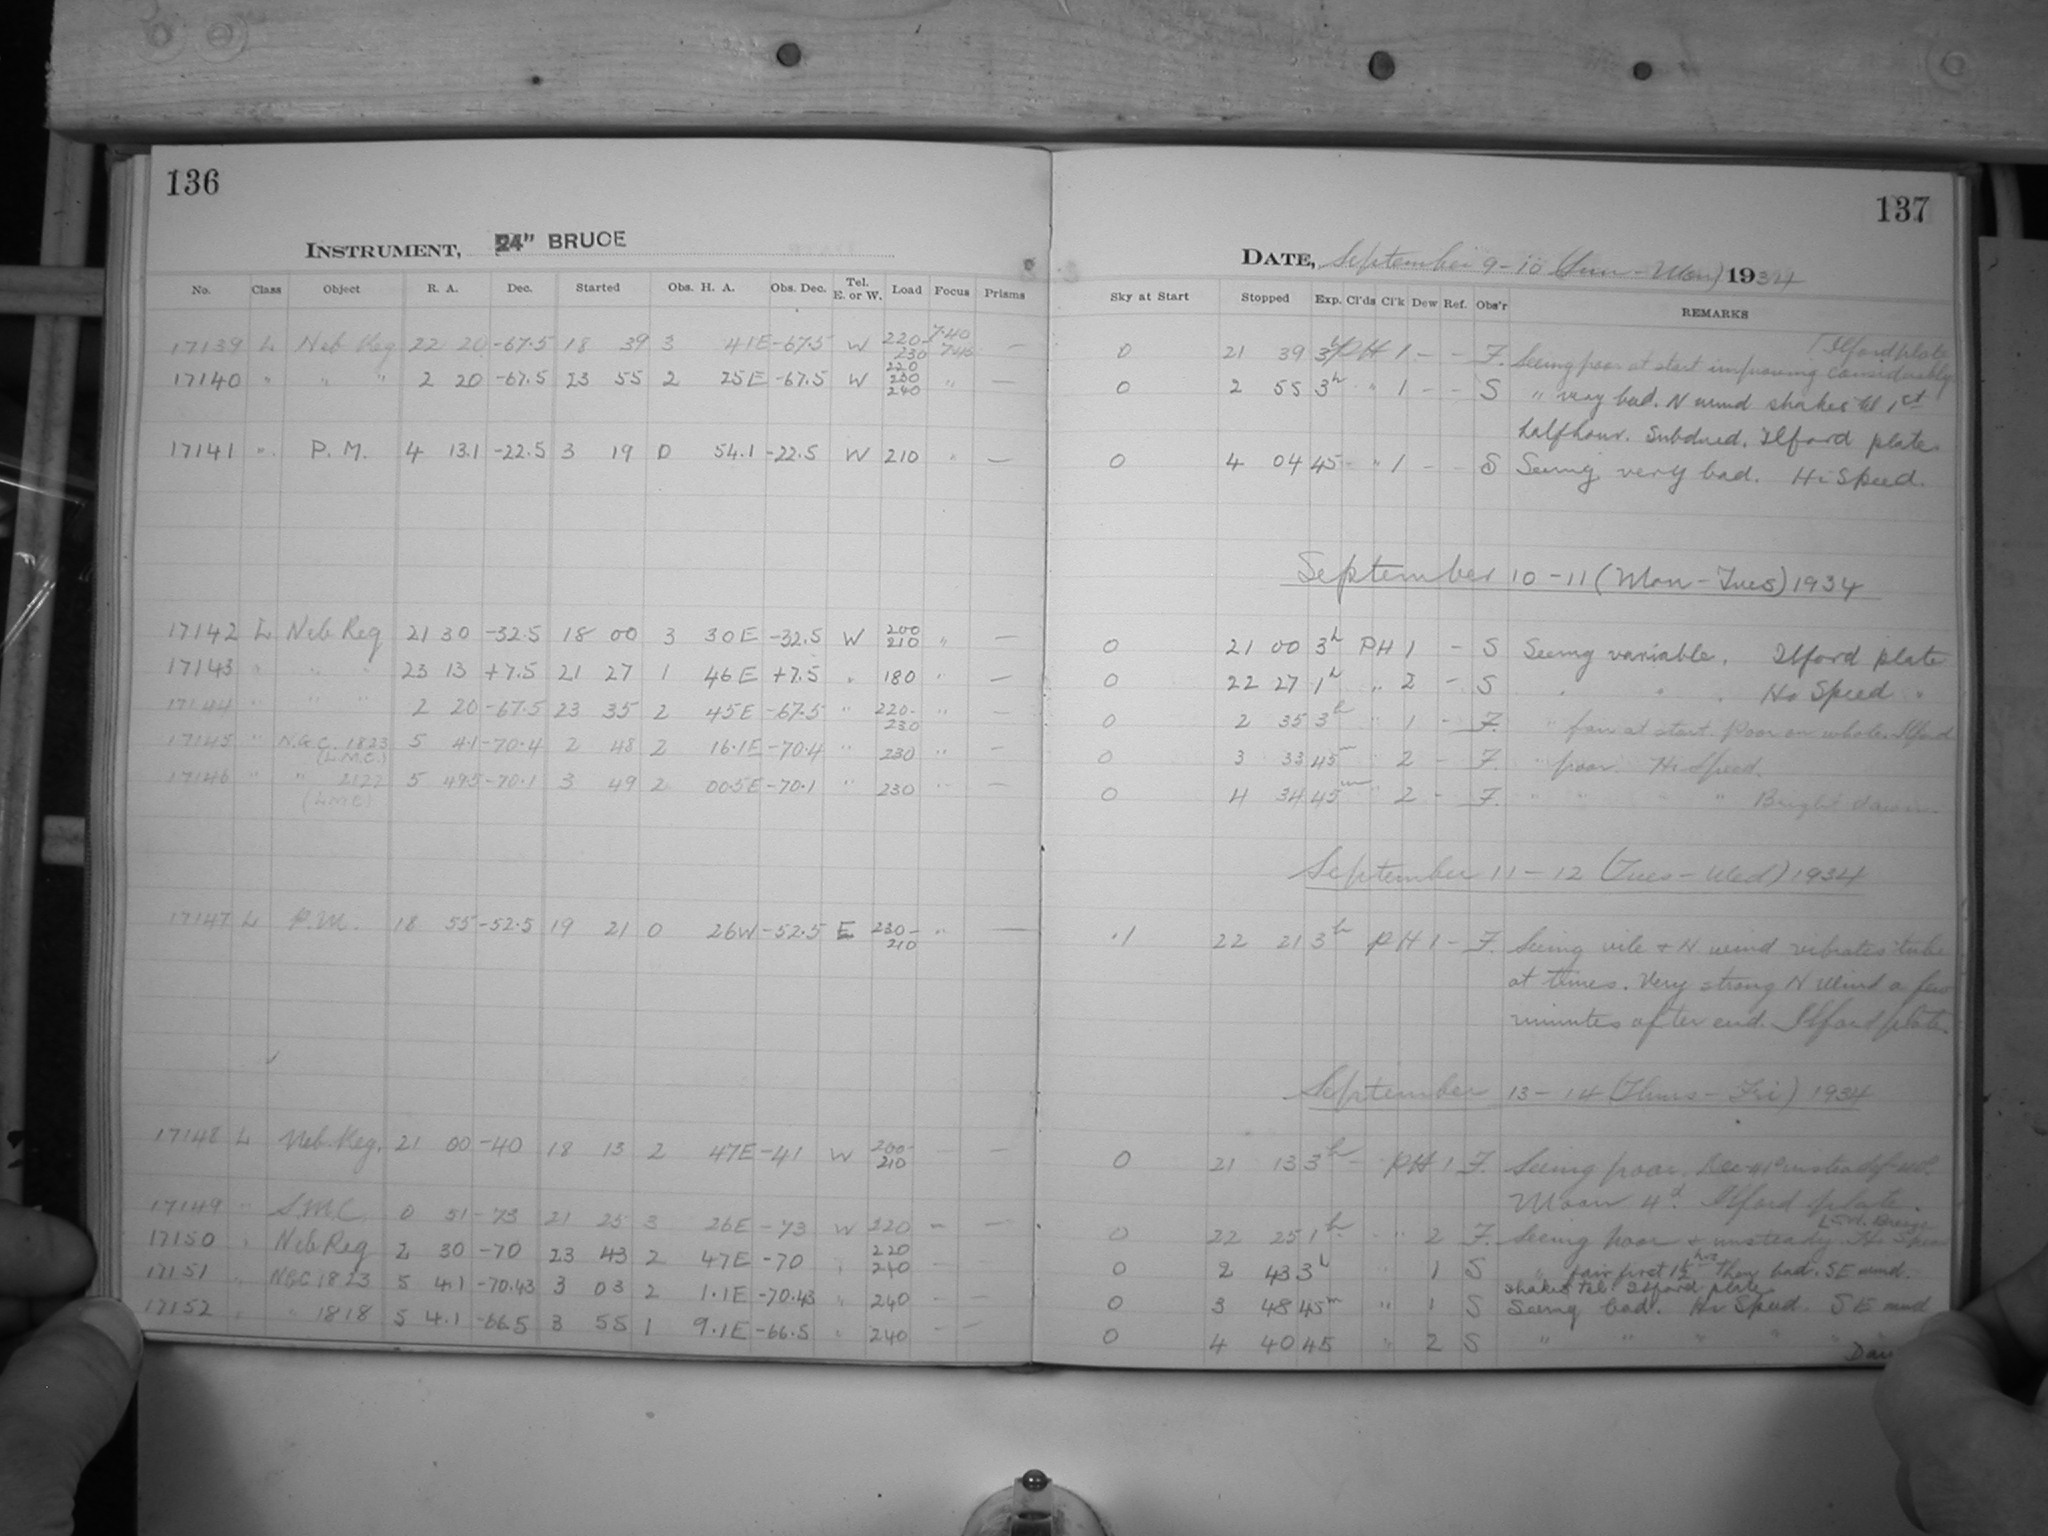 136
INSTRUMENT, 24" BRUCE
No. Class Object R. A. Dec. Started Obs. H. A. Obs. Dec. Tel. E. or W. Load Focus Prisms
17139 L Neb Reg 22 20 -67.5 18 39 3 41E -67.5 W 220- 230 7.40 7.45 —
17140 " " " 2 20 -67.5 23 55 2 25E -67.5 W 220 230 240 " —
17141 " P. M. 4 13.1 -22.5 3 19 0 54.1 -22.5 W 210 " —
17142 L Neb Reg 21 30 -32.5 18 00 3 30E -32.5 W 200 210 " —
17143 " " " 23 13 +7.5 21 27 1 46E +7.5 " 180 " —
17144 " " " 2 20 -67.5 23 35 2 45E -67.5 " 220- 230 " —
17145 " N.G.C. 1823 5 4.1 -70.4 2 48 2 16.1E -70.4 " 230 " —
(L.M.C.)
17146 " " 2122 5 49.5 -70.1 3 49 2 00.5E -70.1 " 230 " —
(LMC)
17147 L P.M. 18 55 -52.5 19 21 0 26W -52.5 E 230- 210 " —
17148 L Neb. Reg. 21 00 -40 18 13 2 47E -41 W 200- 210 — —
17149 " S.M.C. 0 51 -73 21 25 3 26E -73 W 220 — —
17150 " Neb Reg 2 30 -70 23 43 2 47E -70 " 220 240
17151 " NGC 1823 5 4.1 -70.43 3 03 2 1.1E -70.43 " 240 — —
17152 " " 1818 5 4.1 -66.5 3 55 1 9.1E -66.5 " 240 — —
137
DATE, September 9-10 (Sun-Mon) 1934
Sky at Start Stopped Exp. Cl'ds Cl'k Dew Ref. Obs'r REMARKS
Ilford plate
0 21 39 3h PH 1 - - F. Seeing poor at start improving considerably
0 2 55 3h " 1 - - S " very bad. N wind shakes tel 1st
half hour. Subdued. Ilford plate
0 4 04 45 - " 1 - - S Seeing very bad. Hi Speed.
September 10-11 (Mon-Tues) 1934
0 21 00 3h PH 1 - S Seeing variable. Ilford plate
0 22 27 1h " 2 - S " " . Hi Speed "
0 2 35 3h " 1 - F. " fair at start. Poor on whole. Ilford
0 3 33 45m " 2 - F. " poor. Hi Speed.
0 4 34 45m " 2 - F. " " " " Bright dawn.
September 11-12 (Tues-Wed) 1934
.1 22 21 3h PH 1 - F. Seeing vile + N wind vibrates tube
at times. Very strong N wind a few
minutes after end. Ilford plate.
September 13-14 (Thurs-Fri) 1934
0 21 13 3h - PH 1 F. Seeing poor. Dec -41° instead of -40°.
Moon 4d. Ilford plate.
0 22 25 1h " 2 F. Seeing poor & unsteady. Hi Speed
0 2 43 3h " 1 S " fair first 1½ hrs Then bad. SE wind.
shakes tel. Ilford plate
0 3 48 45m " 1 S Seeing bad. Hi Speed. SE wind
0 4 40 45 " 2 S " " " " "